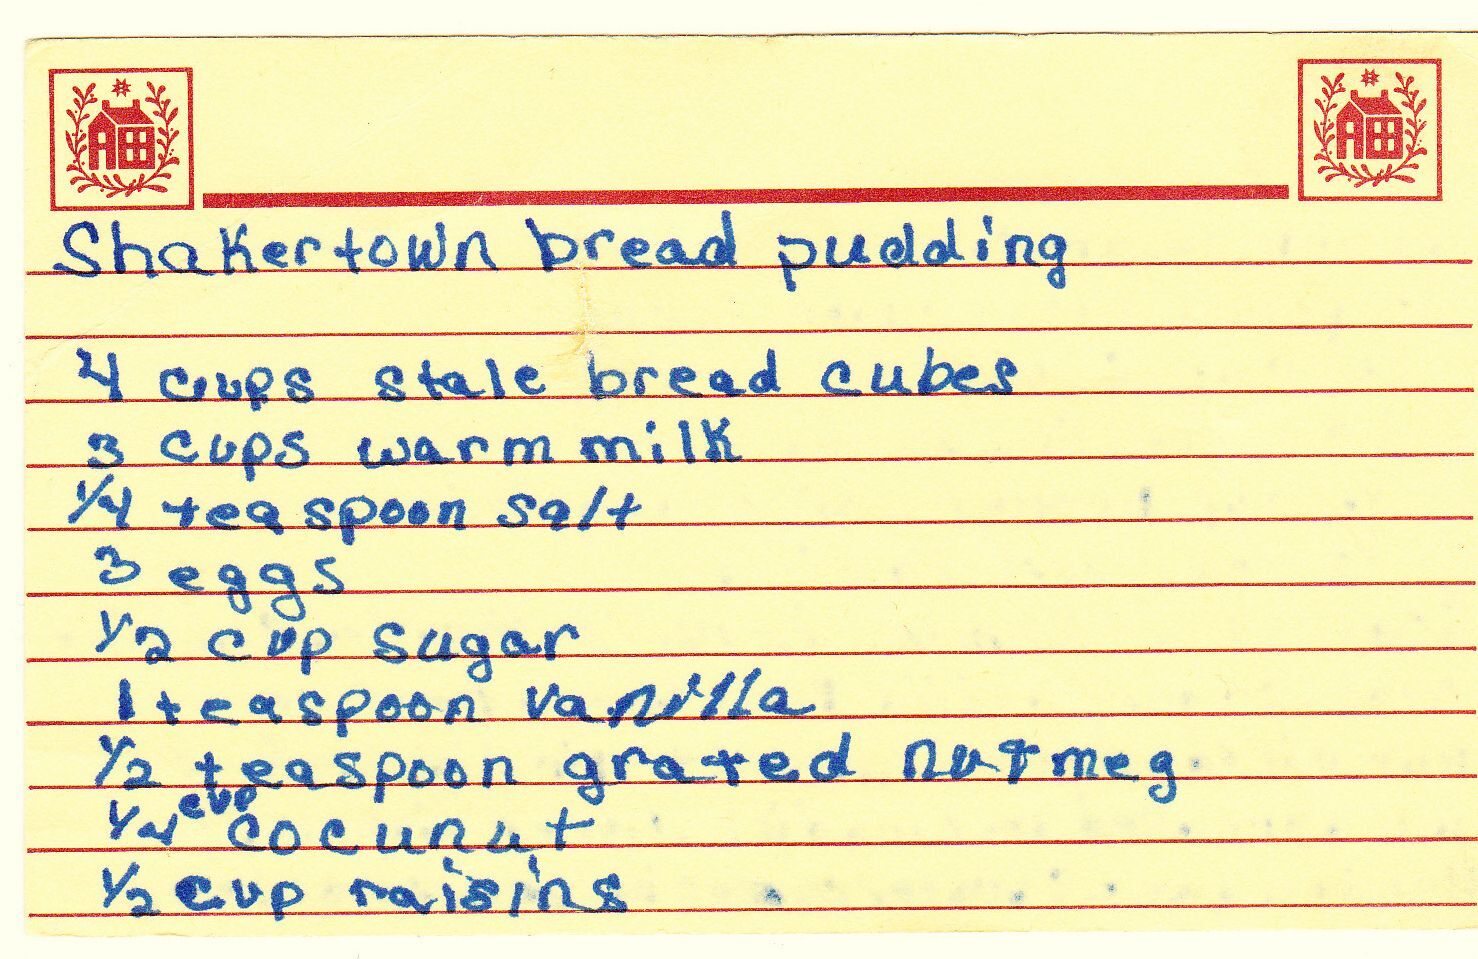 Shakertown bread pudding
4 cups stale bread cubes
3 cups warm milk
1/4 teaspoon salt
3 eggs
1/2 cup sugar
1 teaspoon vanilla
1/2 teaspoon grated nutmeg
1/4 cup cocunut
1/2 cup raisins